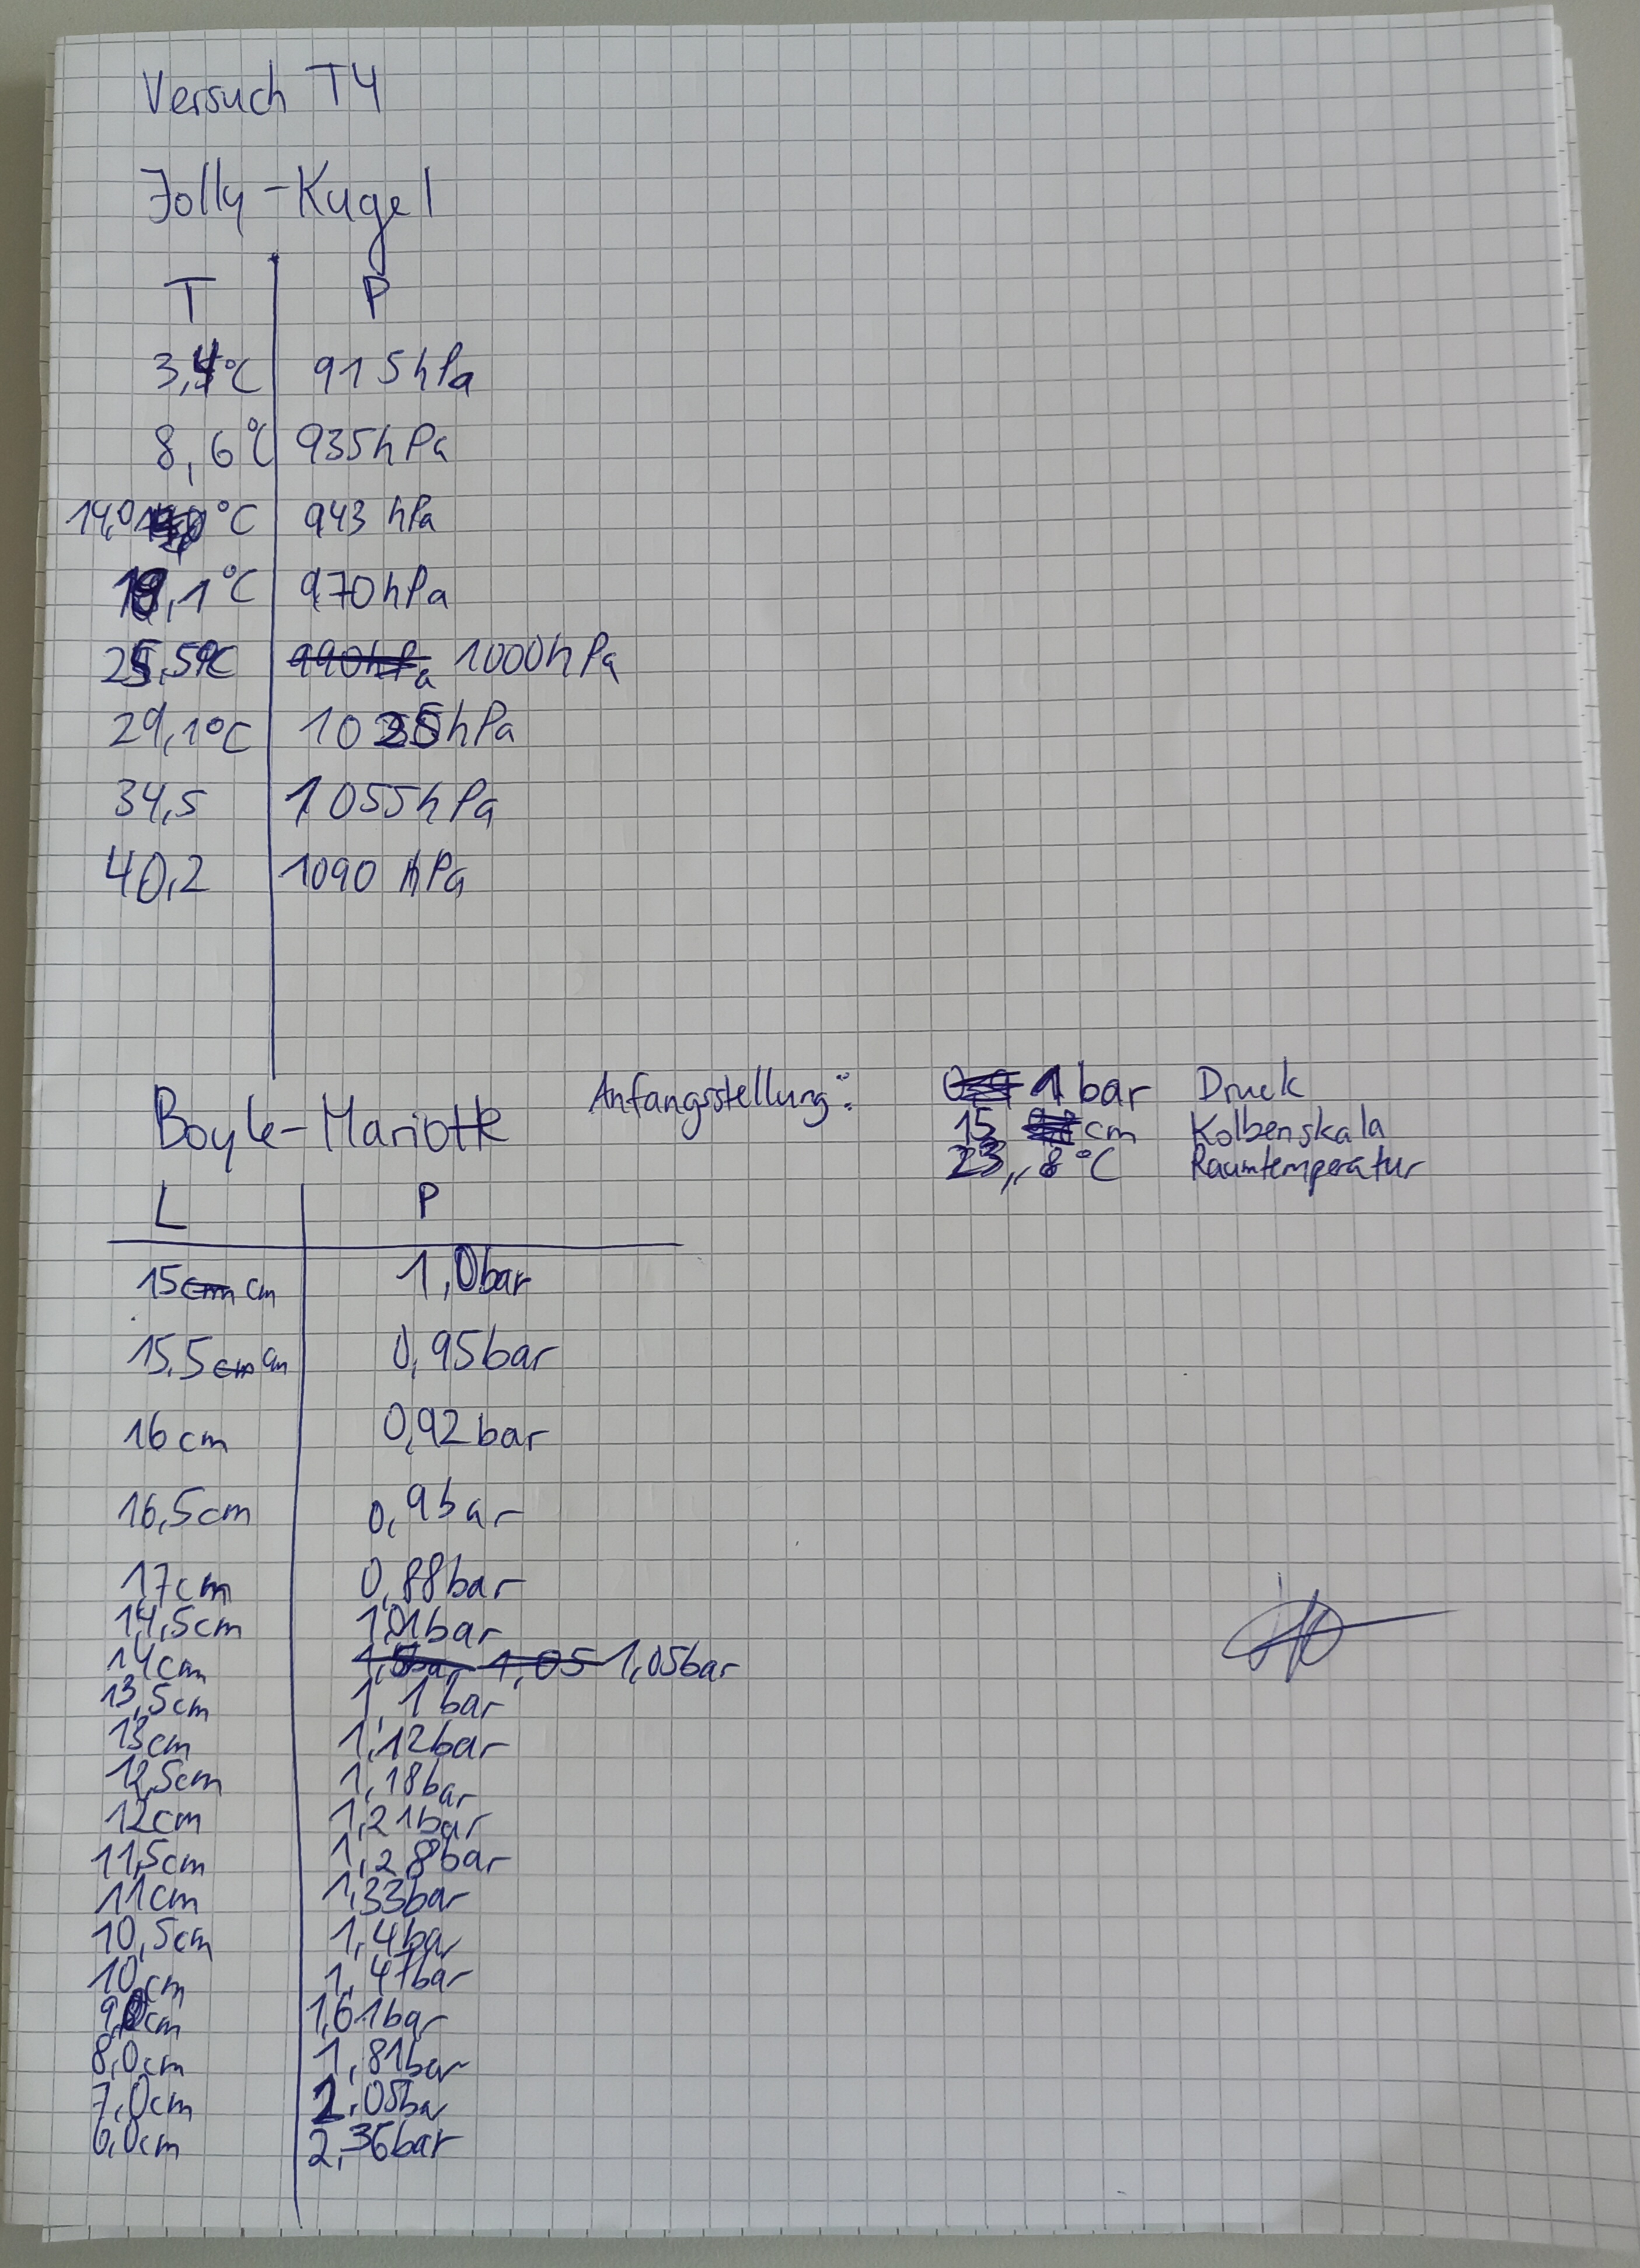 Versuch T4
Jolly-Kugel
T P
3,4°C 915hPa
8,6°C 935hPa
14,0 °C 943 hPa
,1°C 970hPa
25,5°C 990hPa 1000hPa
29,1°C 1025hPa
34,5 1055hPa
40,2 1090 hPa
Boyle-Mariotte
Anfangsstellung: 1 bar Druck
15 cm Kolbenskala
23,8°C Raumtemperatur
L P
15cm cm 1,0bar
15,5cm cm 0,95bar
16cm 0,92bar
16,5cm 0,9bar
17cm 0,88bar
14,5cm 1,01bar
14cm 1,05 1,05bar
13,5cm 1,1bar
13cm 1,12bar
12,5cm 1,18bar
12cm 1,21bar
11,5cm 1,28bar
11cm 1,33bar
10,5cm 1,4bar
10cm 1,47bar
9,0cm 1,61bar
8,0cm 1,81bar
7,0cm 2,05bar
6,0cm 2,36bar